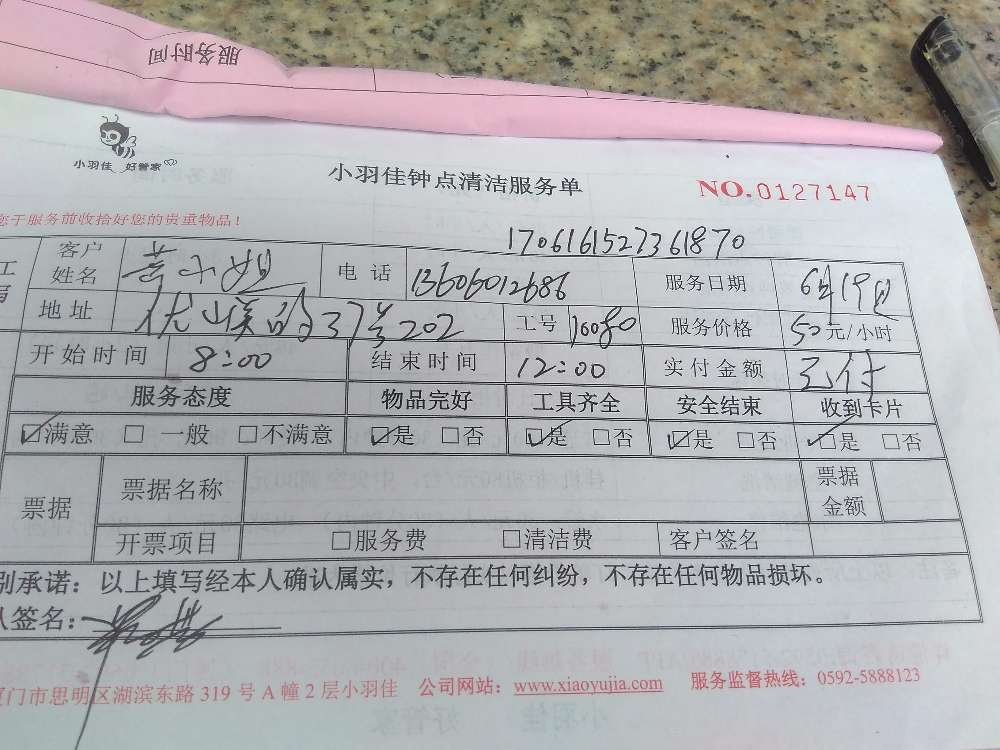 服务时间
小羽佳 好管家
小羽佳钟点清洁服务单
NO.0127147
您于服务前收拾好您的贵重物品!
1706161527361870
客户姓名 小姐 电话 13606012686 服务日期 6月19日
地址 37号202 工号 16080 服务价格 50元/小时
开始时间 8:00 结束时间 12:00 实付金额 已付
服务态度 物品完好 工具齐全 安全结束 收到卡片
☑满意 □一般 □不满意 ☑是 □否 ☑是 □否 ☑是 □否 ☑是 □否
票据 票据名称 票据金额
开票项目 □服务费 □清洁费 客户签名
别承诺:以上填写经本人确认属实,不存在任何纠纷,不存在任何物品损坏。
人签名:
厦门市思明区湖滨东路 319 号 A 幢 2 层小羽佳 公司网站:www.xiaoyujia.com 服务监督热线:0592-5888123